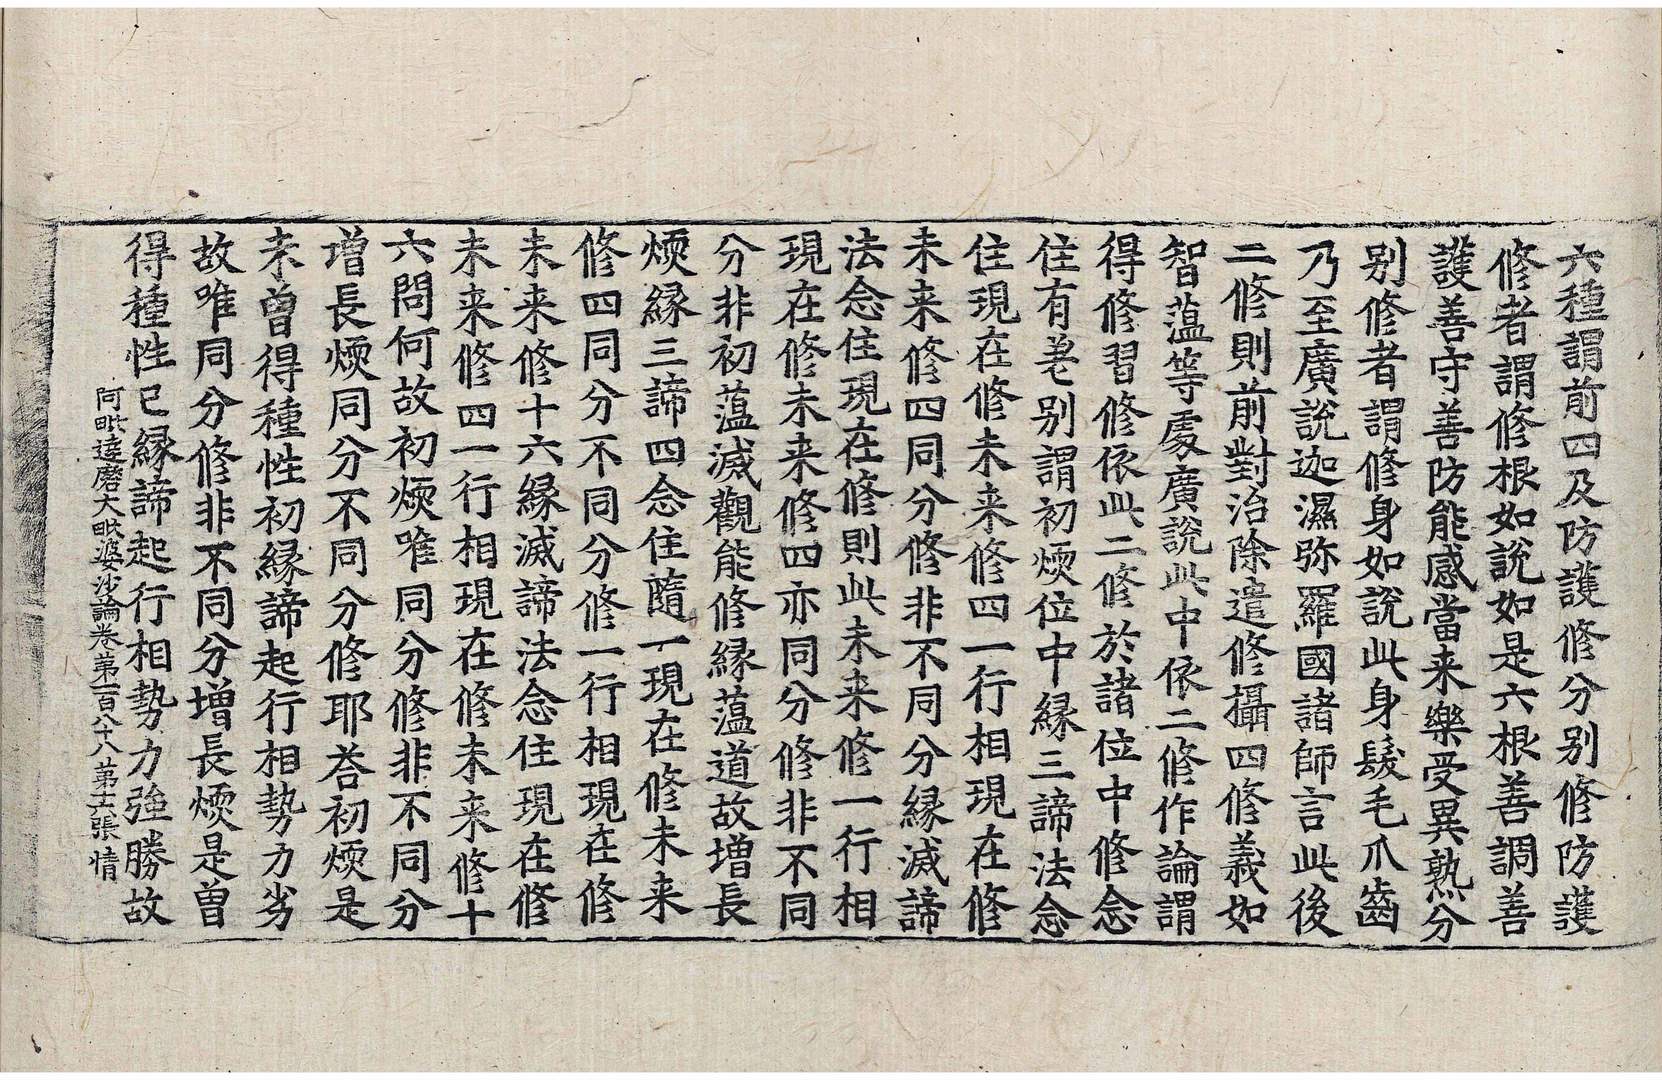 六種謂前四及防護修分別修防護
修者謂修根如說如是六根善調善
護善守善防能感當来樂受異熟分
別修者謂修身如說此身髮毛爪齒
乃至廣說迦濕弥羅國諸師言此後
二修則前對治除遣修攝四修義如
智蕰等處廣說此中依二修作論謂
得修習修依此二修於諸位中修念
住有差別謂初煗位中緣三諦法念
住現在修未来修四一行相現在修
未来修四同分修非不同分緣滅諦
法念住現在修則此未来修一行相
現在修未来修四亦同分修非不同
分非初蕰滅觀能修緣蕰道故增長
煗緣三諦四念住隨一現在修未来
修四同分不同分修一行相現在修
未来修十六緣滅諦法念住現在修
未来修四一行相現在修未来修十
六問何故初煗唯同分修非不同分
增長煗同分不同分修耶荅初煗是
未曾得種性初緣諦起行相勢力劣
故唯同分修非不同分增長煗是曾
得種性已緣諦起行相勢力強勝故
阿毗達磨大毗婆沙論卷第一百八十八第十二張情